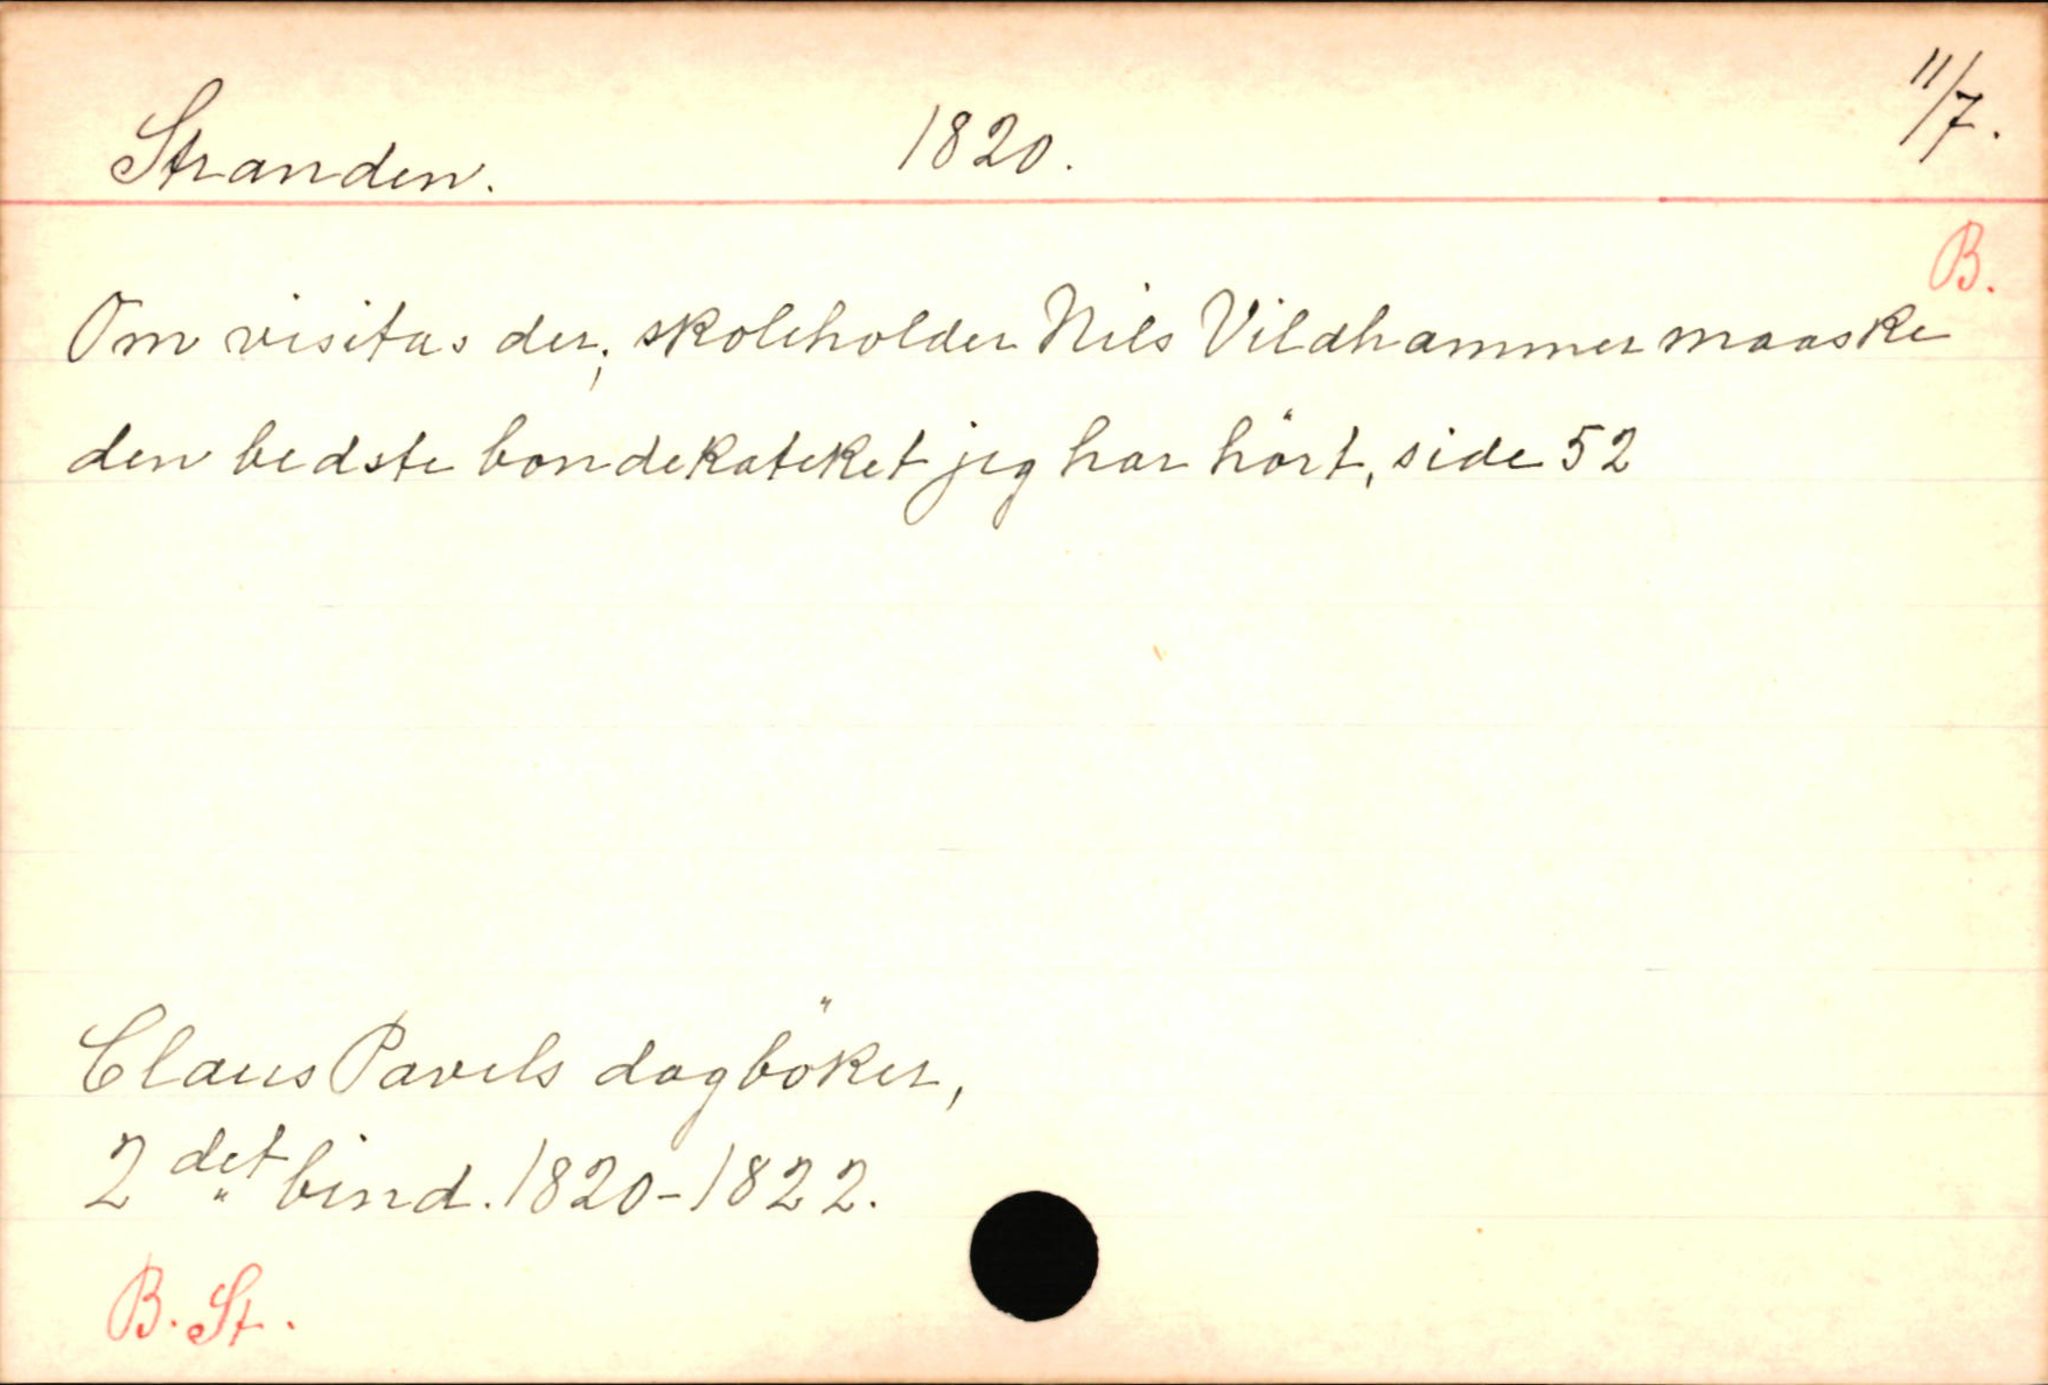 Stranden. 1820. 11/7.
B.
Om visitas der; skoleholder Nils Vildhammer maaske
den bedste bondekateket jeg har hört, side 52
Claus Pavels dagböker,
2det bind. 1820-1822.
B. St.